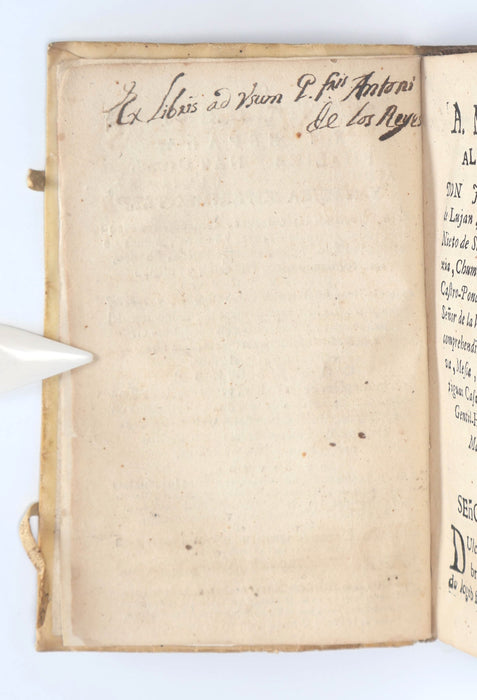 Ex Libris ad Usum P. fris Antoni
de los Reyes
A.
AL
DON
de Lujan
Nieto de S
xia, Chum
Castro-Ponc
Señor de la
comprehendi
va, Mesa,
tiguas Cas
Gentil-H
Ma
SEñO
Dulc
br
do